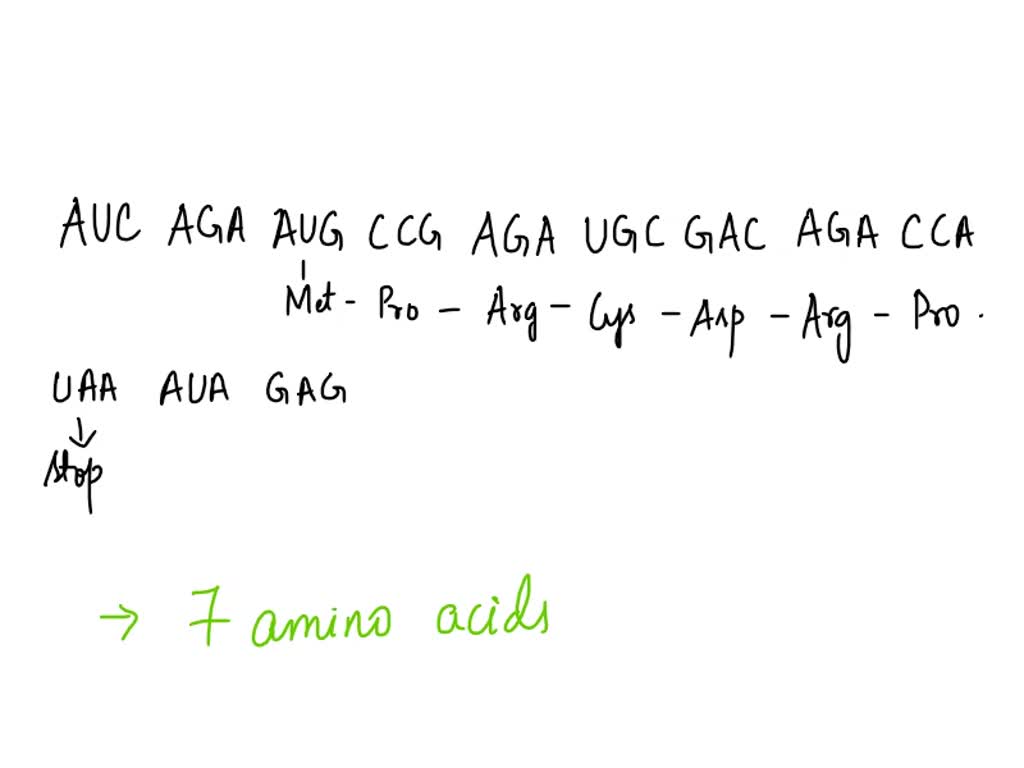 AUC AGA AUG CCG AGA UGC GAC AGA CCA
Met - Pro - Arg - Cys - Asp - Arg - Pro .
UAA AUA GAG
Stop
→ 7 amino acids